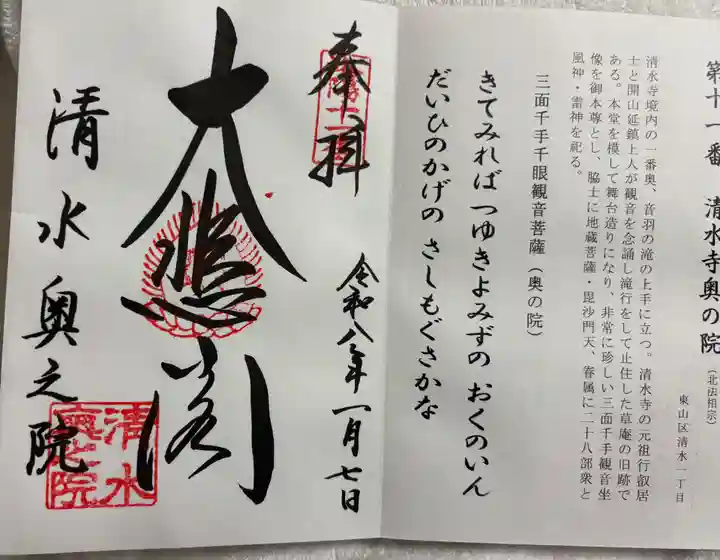 第十一番 清水寺奥の院(北法相宗)
東山区清水一丁目
清水寺境内の一番奥、音羽の滝の上手に立つ。清水寺の元祖行叡居
士と開山延鎮上人が観音を念誦し滝行をして止住した草庵の旧跡で
ある。本堂を模して舞台造りになり、非常に珍しい三面千手観音坐
像を御本尊とし、脇士に地蔵菩薩・毘沙門天、眷属に二十八部衆と
風神・雷神を祀る。
三面千手千眼観音菩薩(奥の院)
きてみれば つゆきよみずの おくのいん
だいひのかげの さしもぐさかな
奉拝
令和八年一月七日
大悲閣
清水奥之院
清水
奥之院